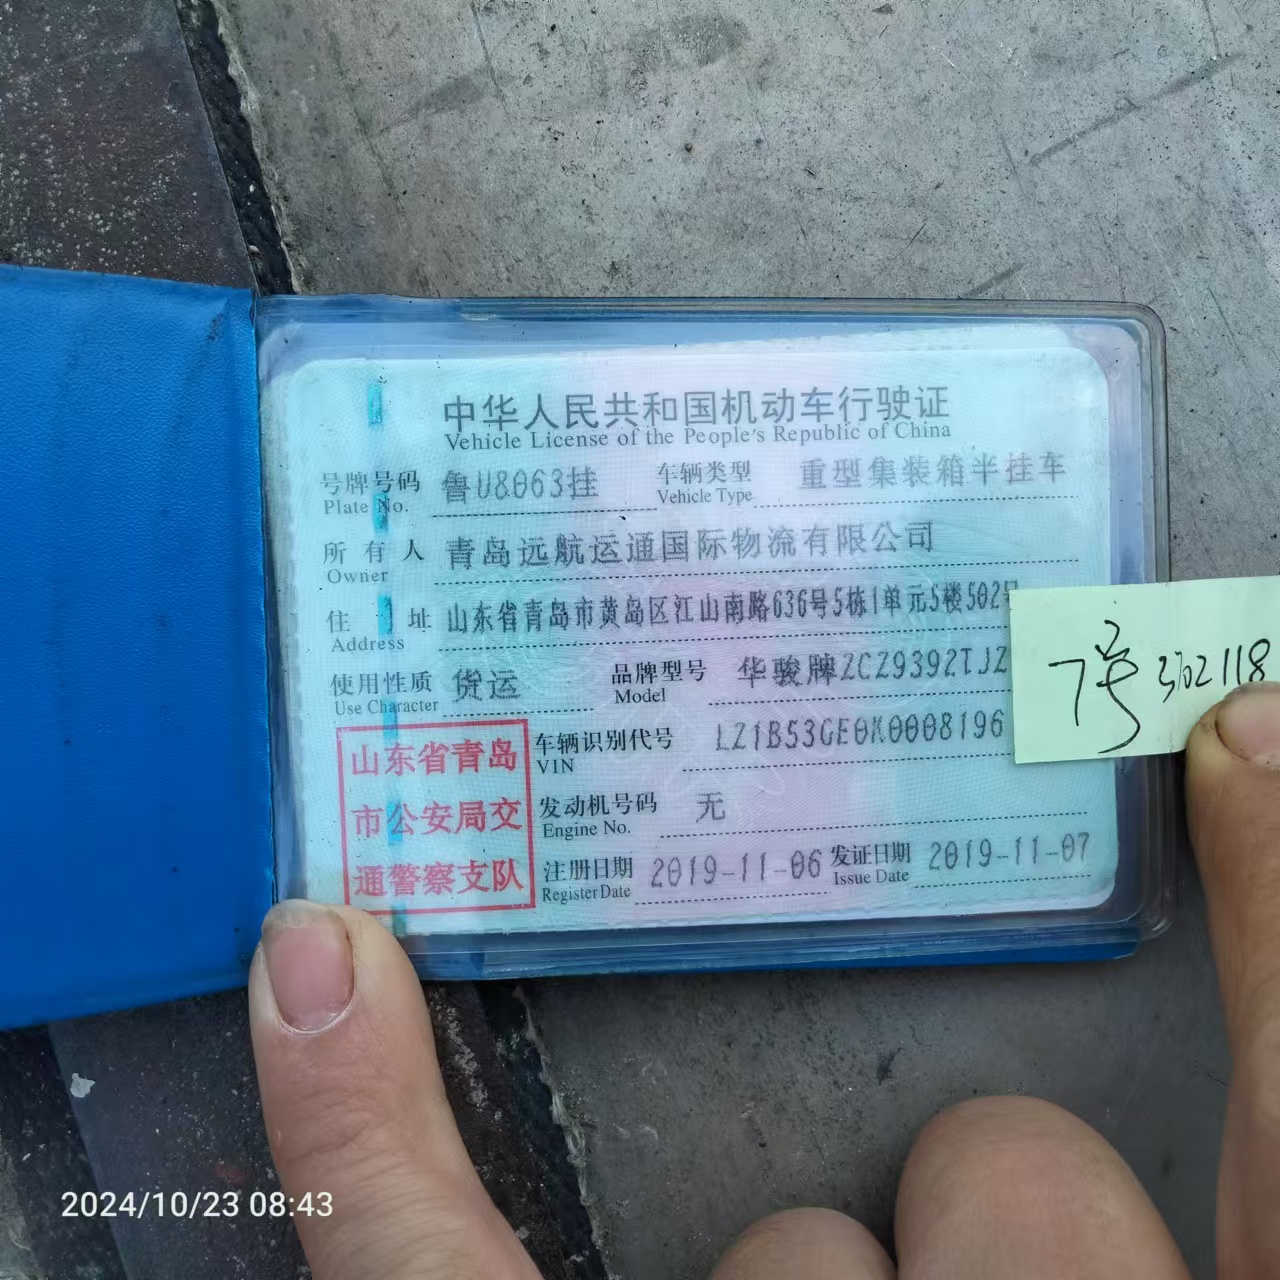 中华人民共和国机动车行驶证
Vehicle License of the People's Republic of China
号牌号码 鲁U8063挂 车辆类型 重型集装箱半挂车
Plate No. Vehicle Type
所有人 青岛远航运通国际物流有限公司
Owner
住址 山东省青岛市黄岛区江山南路636号5栋1单元5楼502号
Address
使用性质 货运 品牌型号 华骏牌ZCZ9392TJZ
Use Character Model
山东省青岛
市公安局交
通警察支队
车辆识别代号 LZ1B53GE0K0008196
VIN
发动机号码 无
Engine No.
注册日期 2019-11-06 发证日期 2019-11-07
Register Date Issue Date
7号 3702118
2024/10/23 08:43